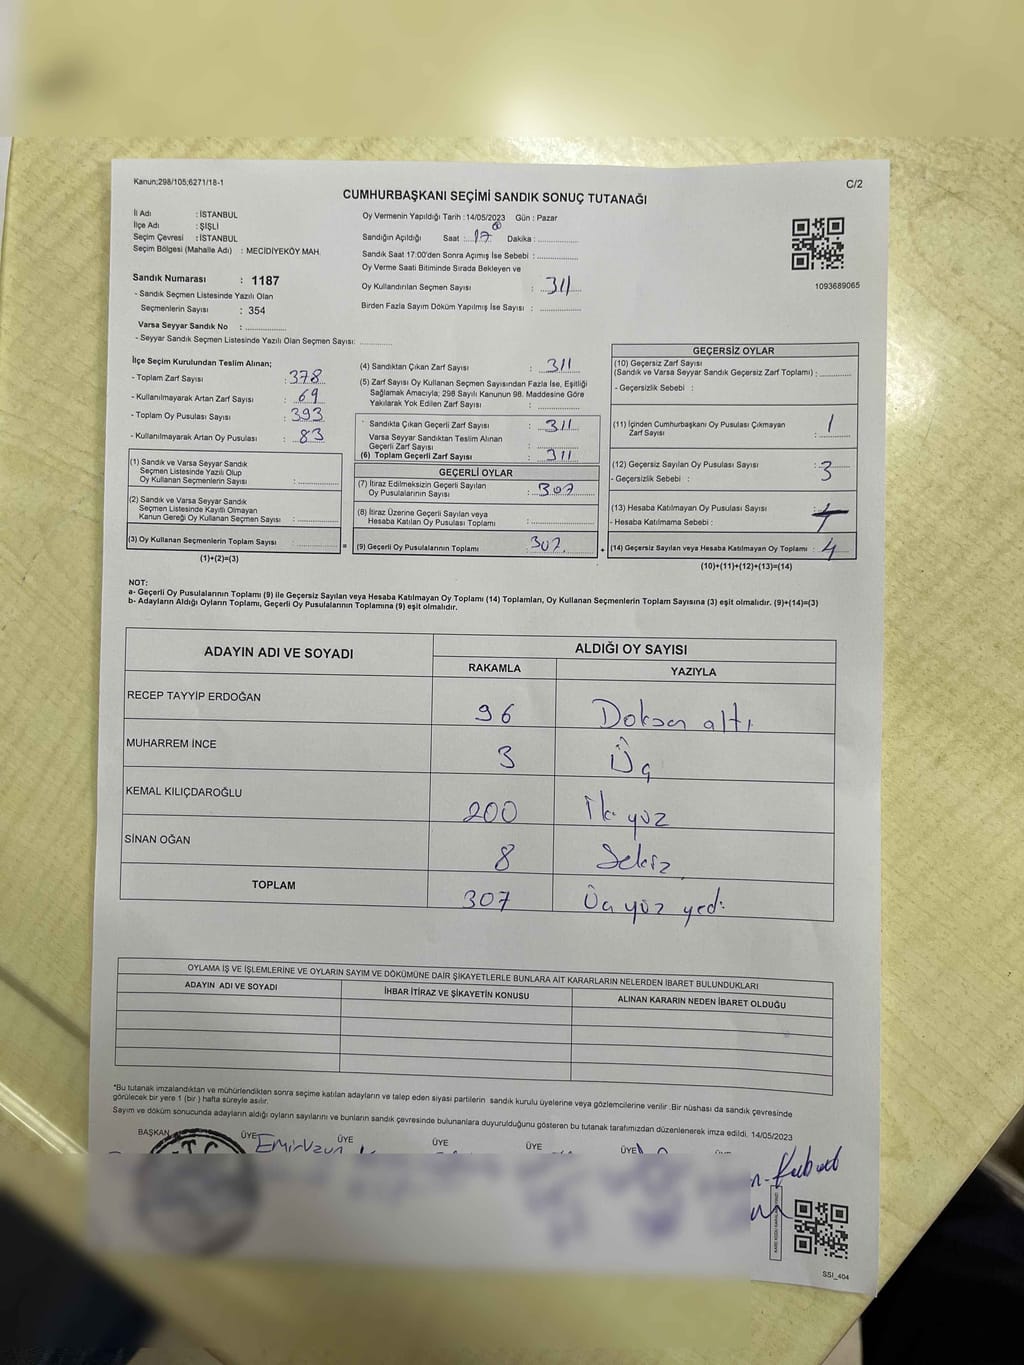 Kanun;298/105;6271/18-1
C/2
CUMHURBAŞKANI SEÇİMİ SANDIK SONUÇ TUTANAĞI
İl Adı : İSTANBUL
İlçe Adı : ŞİŞLİ
Seçim Çevresi : İSTANBUL
Seçim Bölgesi (Mahalle Adı) : MECİDİYEKÖY MAH.
Sandık Numarası : 1187
- Sandık Seçmen Listesinde Yazılı Olan
Seçmenlerin Sayısı : 354
Varsa Seyyar Sandık No : ..............
- Seyyar Sandık Seçmen Listesinde Yazılı Olan Seçmen Sayısı: ............
Oy Vermenin Yapıldığı Tarih : 14/05/2023 Gün : Pazar
Sandığın Açıldığı Saat : 17 Dakika : ..............
Sandık Saat 17:00'den Sonra Açımış İse Sebebi : ..............
Oy Verme Saati Bitiminde Sırada Bekleyen ve
Oy Kullandırılan Seçmen Sayısı : 311
Birden Fazla Sayım Döküm Yapılmış İse Sayısı : ..............
1093689065
İlçe Seçim Kurulundan Teslim Alınan;
- Toplam Zarf Sayısı : 378
- Kullanılmayarak Artan Zarf Sayısı : 69
- Toplam Oy Pusulası Sayısı : 393
- Kullanılmayarak Artan Oy Pusulası : 83
(1) Sandık ve Varsa Seyyar Sandık
Seçmen Listesinde Yazılı Olup
Oy Kullanan Seçmenlerin Sayısı : ..............
(2) Sandık ve Varsa Seyyar Sandık
Seçmen Listesinde Kayıtlı Olmayan
Kanun Gereği Oy Kullanan Seçmen Sayısı : ..............
(3) Oy Kullanan Seçmenlerin Toplam Sayısı : ..............
(1)+(2)=(3)
(4) Sandıktan Çıkan Zarf Sayısı : 311
(5) Zarf Sayısı Oy Kullanan Seçmen Sayısından Fazla İse, Eşitliği
Sağlamak Amacıyla; 298 Sayılı Kanunun 98. Maddesine Göre
Yakılarak Yok Edilen Zarf Sayısı : ..............
Sandıkta Çıkan Geçerli Zarf Sayısı : 311
Varsa Seyyar Sandıktan Teslim Alınan
Geçerli Zarf Sayısı : ..............
(6) Toplam Geçerli Zarf Sayısı : 311
GEÇERLİ OYLAR
(7) İtiraz Edilmeksizin Geçerli Sayılan
Oy Pusulalarının Sayısı : 307
(8) İtiraz Üzerine Geçerli Sayılan veya
Hesaba Katılan Oy Pusulası Toplamı : ..............
= (9) Geçerli Oy Pusulalarının Toplamı 307
GEÇERSİZ OYLAR
(10) Geçersiz Zarf Sayısı
(Sandık ve Varsa Seyyar Sandık Geçersiz Zarf Toplamı) : ..............
- Geçersizlik Sebebi :
(11) İçinden Cumhurbaşkanı Oy Pusulası Çıkmayan
Zarf Sayısı : 1
(12) Geçersiz Sayılan Oy Pusulası Sayısı : 3
- Geçersizlik Sebebi :
(13) Hesaba Katılmayan Oy Pusulası Sayısı :
- Hesaba Katılmama Sebebi :
+ (14) Geçersiz Sayılan veya Hesaba Katılmayan Oy Toplamı : 4
(10)+(11)+(12)+(13)=(14)
NOT:
a- Geçerli Oy Pusulalarının Toplamı (9) ile Geçersiz Sayılan veya Hesaba Katılmayan Oy Toplamı (14) Toplamları, Oy Kullanan Seçmenlerin Toplam Sayısına (3) eşit olmalıdır. (9)+(14)=(3)
b- Adayların Aldığı Oyların Toplamı, Geçerli Oy Pusulalarının Toplamına (9) eşit olmalıdır.
ADAYIN ADI VE SOYADI
ALDIĞI OY SAYISI
RAKAMLA YAZIYLA
RECEP TAYYİP ERDOĞAN 96 Doksan altı
MUHARREM İNCE 3 Üç
KEMAL KILIÇDAROĞLU 200 İki yüz
SİNAN OĞAN 8 Sekiz
TOPLAM 307 Üç yüz yedi
OYLAMA İŞ VE İŞLEMLERİNE VE OYLARIN SAYIM VE DÖKÜMÜNE DAİR ŞİKAYETLERLE BUNLARA AİT KARARLARIN NELERDEN İBARET BULUNDUKLARI
ADAYIN ADI VE SOYADI İHBAR İTİRAZ VE ŞİKAYETİN KONUSU ALINAN KARARIN NEDEN İBARET OLDUĞU
*Bu tutanak imzalandıktan ve mühürlendikten sonra seçime katılan adayların ve talep eden siyasi partilerin sandık kurulu üyelerine veya gözlemcilerine verilir .Bir nüshası da sandık çevresinde
görülecek bir yere 1 (bir ) hafta süreyle asılır.
Sayım ve döküm sonucunda adayların aldığı oyların sayılarını ve bunların sandık çevresinde bulunanlara duyurulduğunu gösteren bu tutanak tarafımızdan düzenlenerek imza edildi. 14/05/2023
BAŞKAN ÜYE ÜYE ÜYE ÜYE ÜYE
T.C.
SSI_404